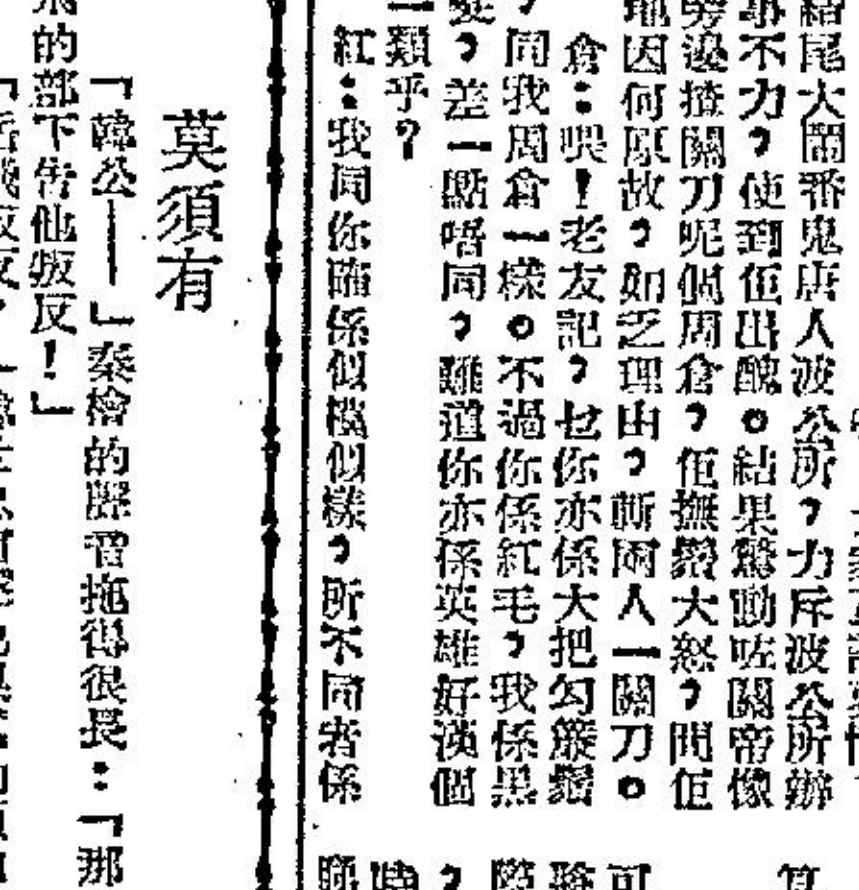 結尾大鬧番鬼唐人波公所，力斥波公所辦
事不力，使到佢出醜。結果驚動咗關帝像
旁邊揸關刀呢個周倉，佢撫鬚大怒，問佢
地因何原故，如乏理由，斬兩人一關刀。
倉：喂！老友記，乜你亦係大把勾嚴鬚
，同我周倉一樣。不過你係紅毛，我係黑
髮，差一點唔同，難道你亦係英雄好漢個
一類乎？
紅：我同你確係似模似樣，所不同者係
莫須有
「韓公——」秦檜的聲音拖得很長：「那
的部下告他叛反！」